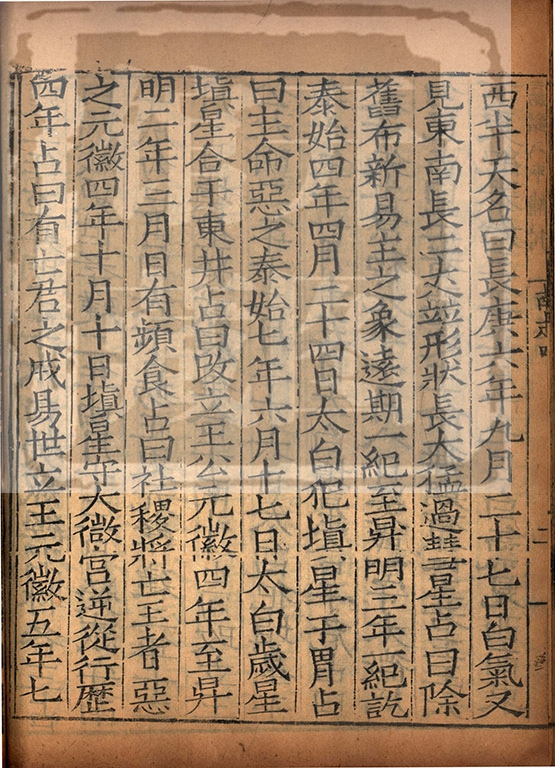 西半天名曰長庚六年九月二十七日白氣又
見東南長二丈並形狀長大猛過彗星占曰除
舊布新易主之象遠期一紀至昇明三年一紀訖
泰始四年四月二十四日太白犯塡星于胃占
曰主命惡之泰始七年六月十七日太白歲星
塡星合于東井占曰改立王公元徽四年至昇
明二年三月日有頻食占曰社稷將亡王者惡
之元徽四年十月十日塡星守太微宮逆從行歷
四年占曰有亡君之戒易世立王元徽五年七